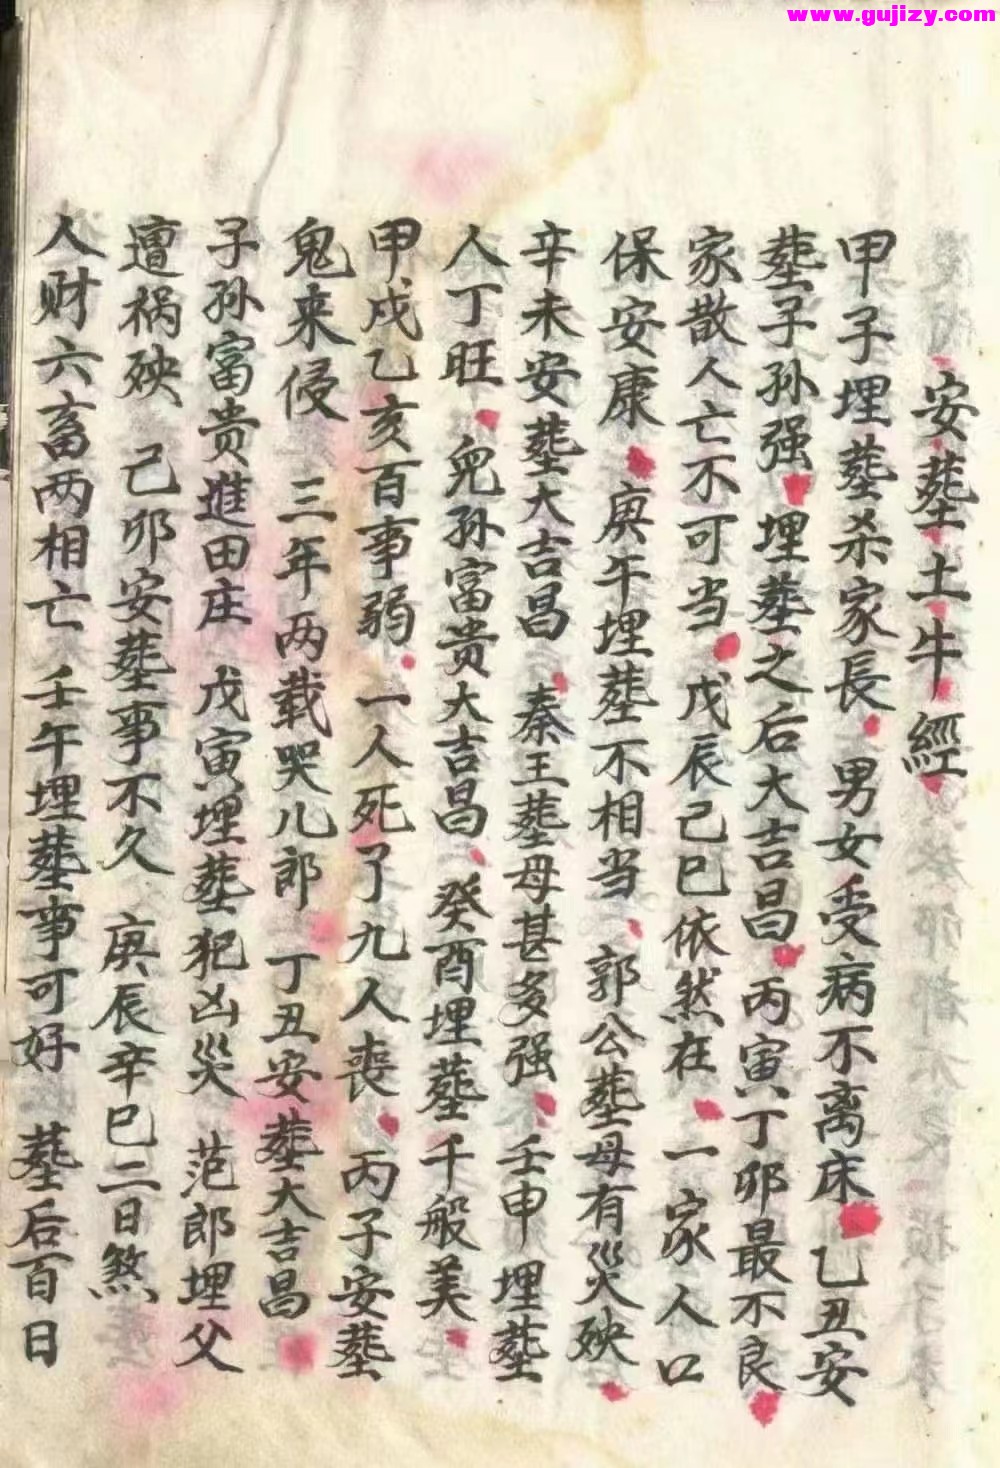 www.gujizy.com
安葬土牛經
甲子埋葬杀家長 男女受病不离床 乙丑安
葬子孙强 埋葬之后大吉昌 丙寅丁卯最不良
家散人亡不可当 戊辰己巳依然在 一家人口
保安康 庚午埋葬不相当 郭公葬母有災殃
辛未安葬大吉昌 秦王葬母甚多强 壬申埋葬
人丁旺 兒孙富贵大吉昌 癸酉埋葬千般美
甲戌乙亥百事弱 一人死了九人喪 丙子安葬
鬼来侵 三年两载哭儿郎 丁丑安葬大吉昌
子孙富贵進田庄 戊寅埋葬犯凶災 范郎埋父
遭祸殃 己卯安葬事不久 庚辰辛巳二日煞
人财六畜两相亡 壬午埋葬事可好 葬后百日